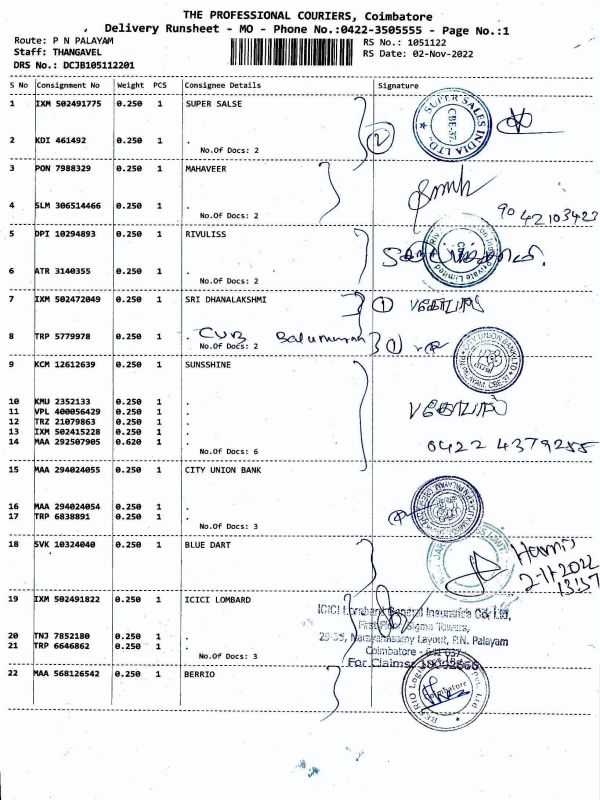 THE PROFESSIONAL COURIERS, Coimbatore
Delivery Runsheet - MO - Phone No.:0422-3505555 - Page No.:1
Route: P N PALAYAM RS No.: 1051122
Staff: THANGAVEL RS Date: 02-Nov-2022
DRS No.: DCJB105112201
S No Consignment No Weight PCS Consignee Details Signature
1 IXM 502491775 0.250 1 SUPER SALSE
SUPER SALES INDIA LTD. CBE-37
2 KDI 461492 0.250 1 . 2
No.Of Docs: 2
3 PON 7988329 0.250 1 MAHAVEER
4 SLM 306514466 0.250 1 .
No.Of Docs: 2 90 42103423
5 DPI 10294893 0.250 1 RIVULISS
Private Limited
6 ATR 3140355 0.250 1 .
No.Of Docs: 2
7 IXM 502472049 0.250 1 SRI DHANALAKSHMI 1
8 TRP 5779978 0.250 1 . CUB Balumurugan 1
No.Of Docs: 2
9 KCM 12612639 0.250 1 SUNSSHINE
CITY UNION BANK LTD P.N.PALAYAM, CBE-37
10 KMU 2352133 0.250 1 .
11 VPL 400056429 0.250 1 .
12 TRZ 21079863 0.250 1 .
13 IXM 502415228 0.250 1 .
14 MAA 292507905 0.620 1 .
No.Of Docs: 6 0422 4379255
15 MAA 294024055 0.250 1 CITY UNION BANK
16 MAA 294024054 0.250 1 .
17 TRP 6838891 0.250 1 .
No.Of Docs: 3
18 SVK 10324040 0.250 1 BLUE DART
2-11-2022
13:57
19 IXM 502491822 0.250 1 ICICI LOMBARD
ICICI Lombard General Insurance Co. Ltd,
First Floor, Sigma Towers,
20 TNJ 7852180 0.250 1 .
29-35, Narayanasamy Layout, P.N. Palayam
21 TRP 6646862 0.250 1 .
Coimbatore - 641 037
No.Of Docs: 3
For Claims: 18002666
22 MAA 568126542 0.250 1 BERRIO
BERRIO Logi Pvt. Ltd Coimbatore